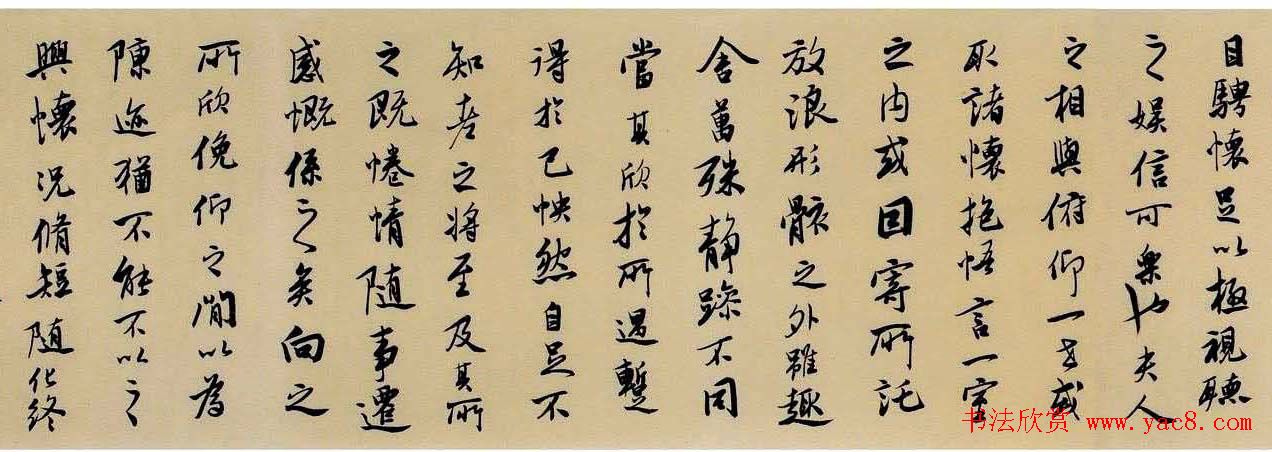 目騁懷足以極視聽
之娛信可樂也夫人
之相與俯仰一世或
取諸懷抱悟言一室
之内或因寄所託
放浪形骸之外雖趣
舍萬殊静躁不同
當其欣於所遇蹔
得於己怏然自足不
知老之將至及其所
之既惓情随事遷
感慨係之矣向之
所欣俛仰之閒以為
陳迹猶不能不以之
興懷況脩短随化終
书法欣赏 www.yac8.com